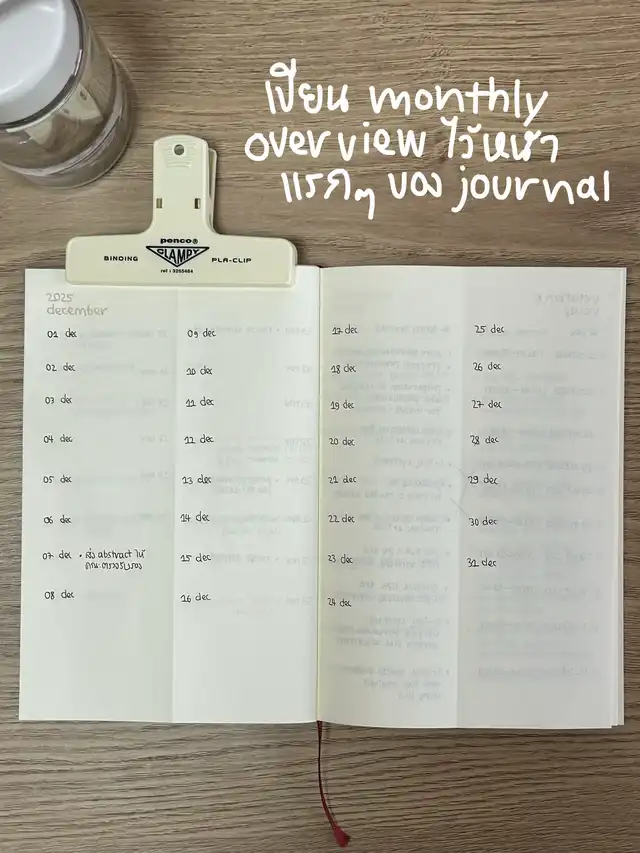 เขียน monthly
overview ไว้หน้า
แรกๆ ของ journal
penco®
CLAMPY
BINDING
PLA-CLIP
ref : 3265484
2025
december
01 dec
02 dec
03 dec
04 dec
05 dec
06 dec
07 dec • ส่ง abstract ให้
คณะตรวจรับรอง
08 dec
09 dec
10 dec
11 dec
12 dec
13 dec
14 dec
15 dec
16 dec
17 dec
18 dec
19 dec
20 dec
21 dec
22 dec
23 dec
24 dec
25 dec
26 dec
27 dec
28 dec
29 dec
30 dec
31 dec